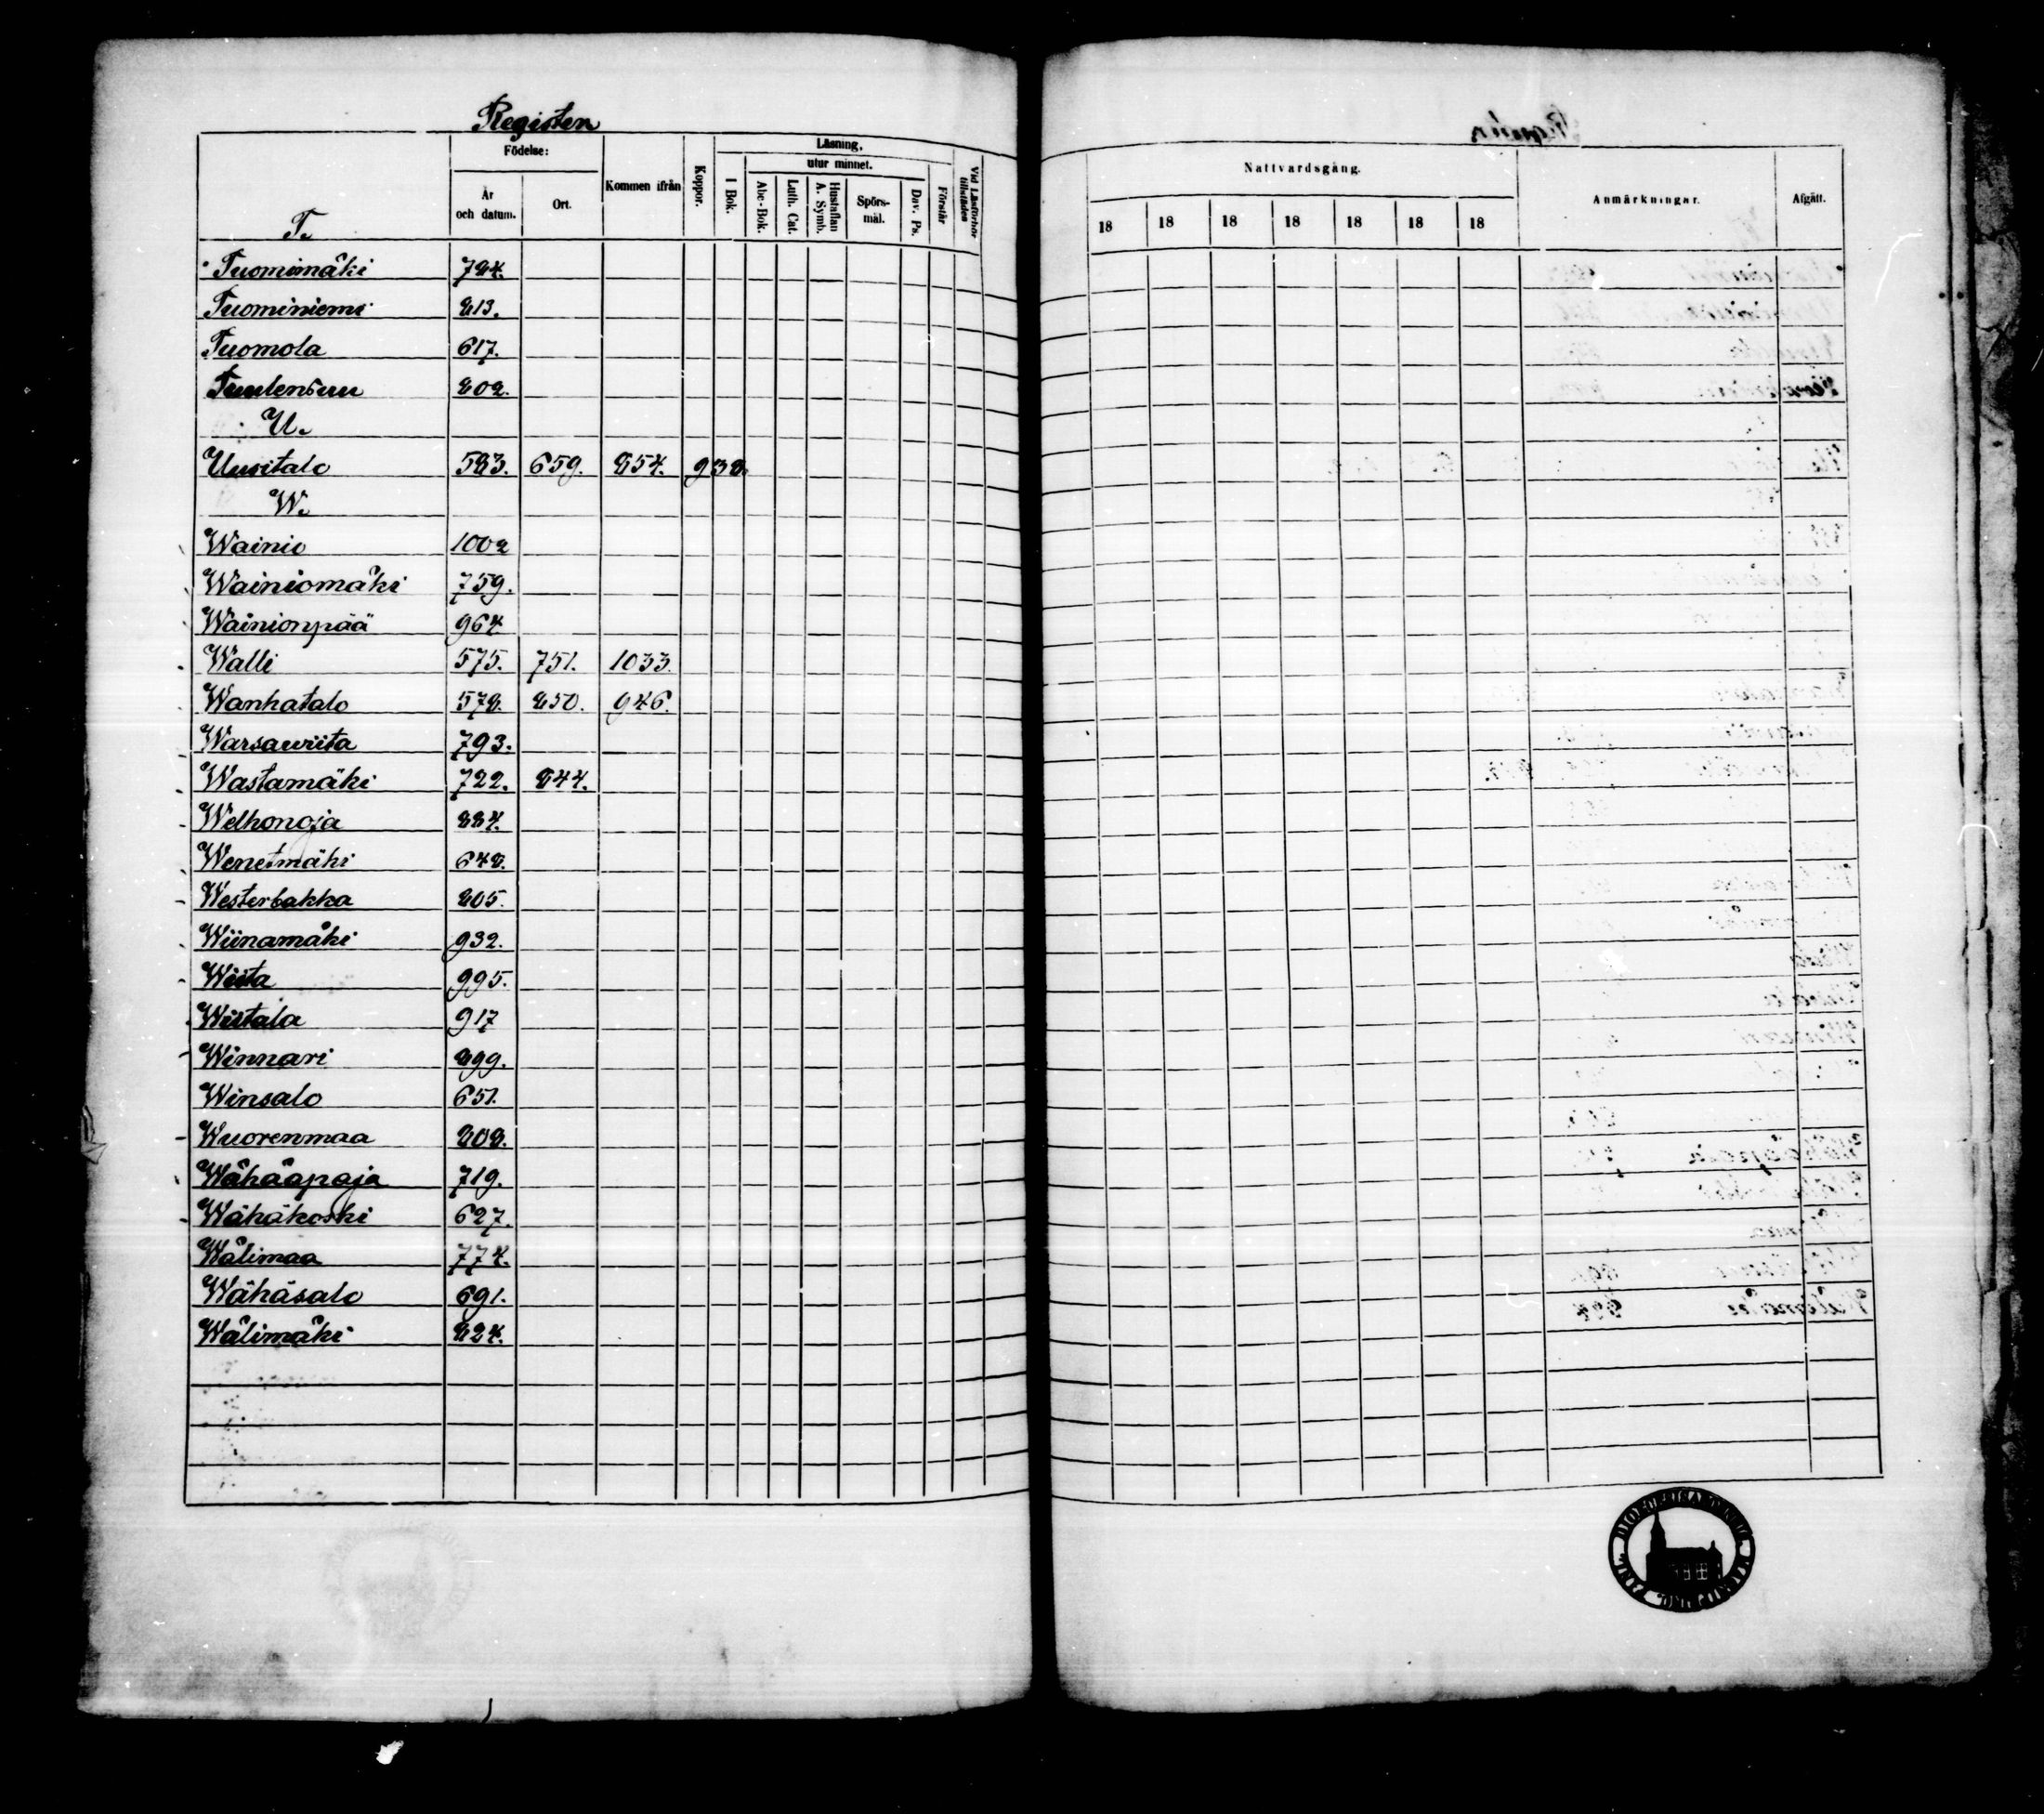 Registen
Födelse:
Läsning,
utur minnet.
År och datum.
Ort.
Kommen ifrån
Koppor.
I Bok.
Abc-Bok.
Luth. Cat.
Hustaflan A. Symb.
Spörs-mål.
Dav. Ps.
Förstår
Vid Läsförhör tillstädes
Nattvardsgång.
Anmärkningar.
Afgått.
18 18 18 18 18 18 18
T.
Tuomimäki 784.
Tuominiemi 813.
Tuomola 617.
Tuulensuu 802.
U.
Uusitalo 583. 659. 854. 938.
W.
Wainio 1002
Wainiomäki 759.
Wainionpää 964
Walli 575. 751. 1033.
Wanhatalo 578. 850. 946.
Warsawiita 793.
Wastamäki 722. 844.
Welhonoja 884.
Wenetmäki 648.
Westerbakka 805.
Wiinamäki 932.
Wiita 995.
Wiitala 917
Winnari 899.
Winsalo 651.
Wuorenmaa 808.
Wähääpaja 719.
Wähäkoski 627.
Wälimaa 774.
Wähäsalo 691.
Wälimäki 824.